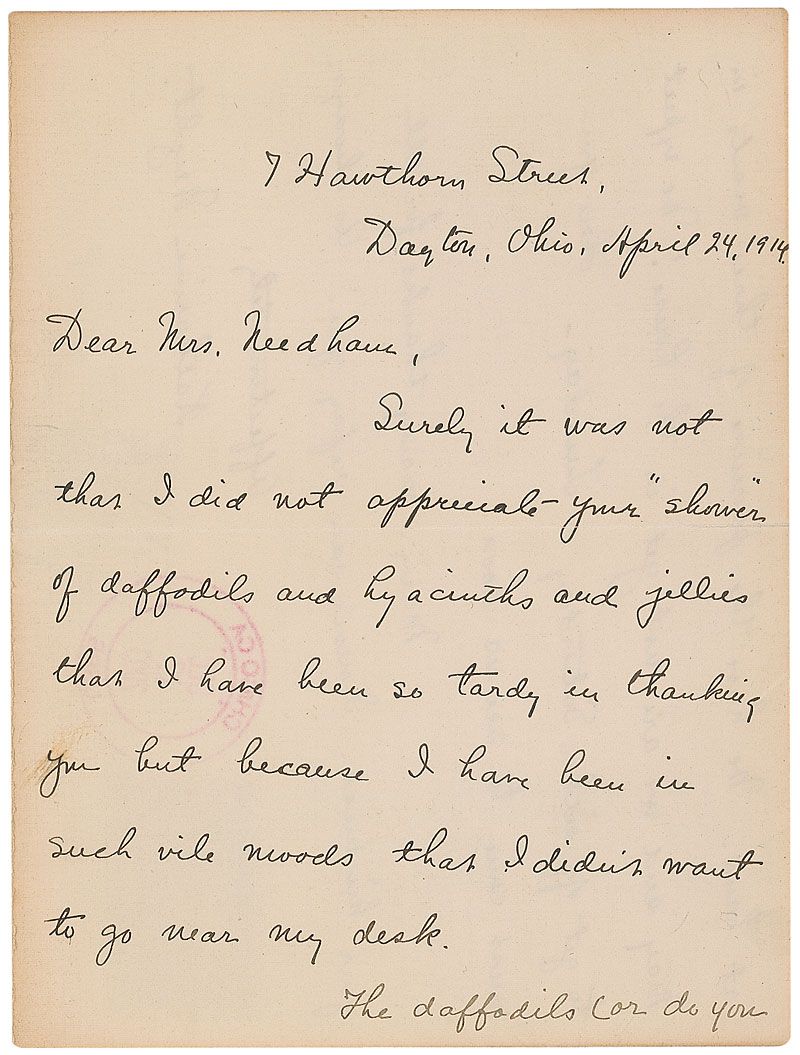 7 Hawthorn Street,
Dayton, Ohio, April 24, 1914.
Dear Mrs. Needham,
Surely it was not
that I did not appreciate your "shower"
of daffodils and hyacinths and jellies
that I have been so tardy in thanking
you but because I have been in
such vile moods that I didn't want
to go near my desk.
The daffodils (or do you